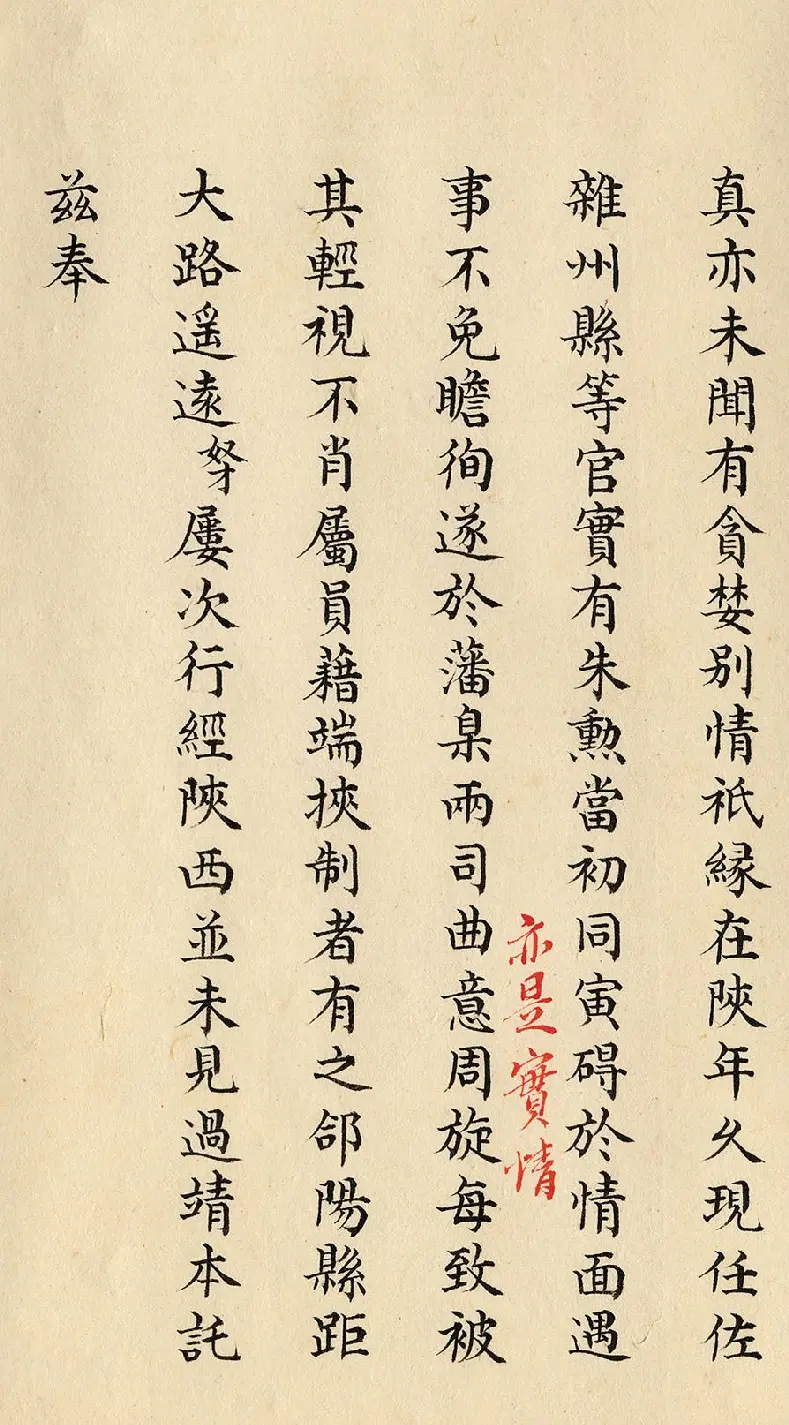 真亦未聞有貪婪别情祇縁在陝年久現任佐
雜州縣等官實有朱勲當初同寅碍於情面遇
亦是實情
事不免瞻徇遂於藩臬兩司曲意周旋每致被
其輕視不肖屬員藉端挾制者有之郃陽縣距
大路遥遠奴才屢次行經陝西並未見過靖本託
兹奉